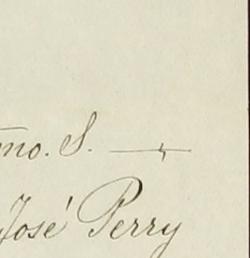 mo. S.
José Perry